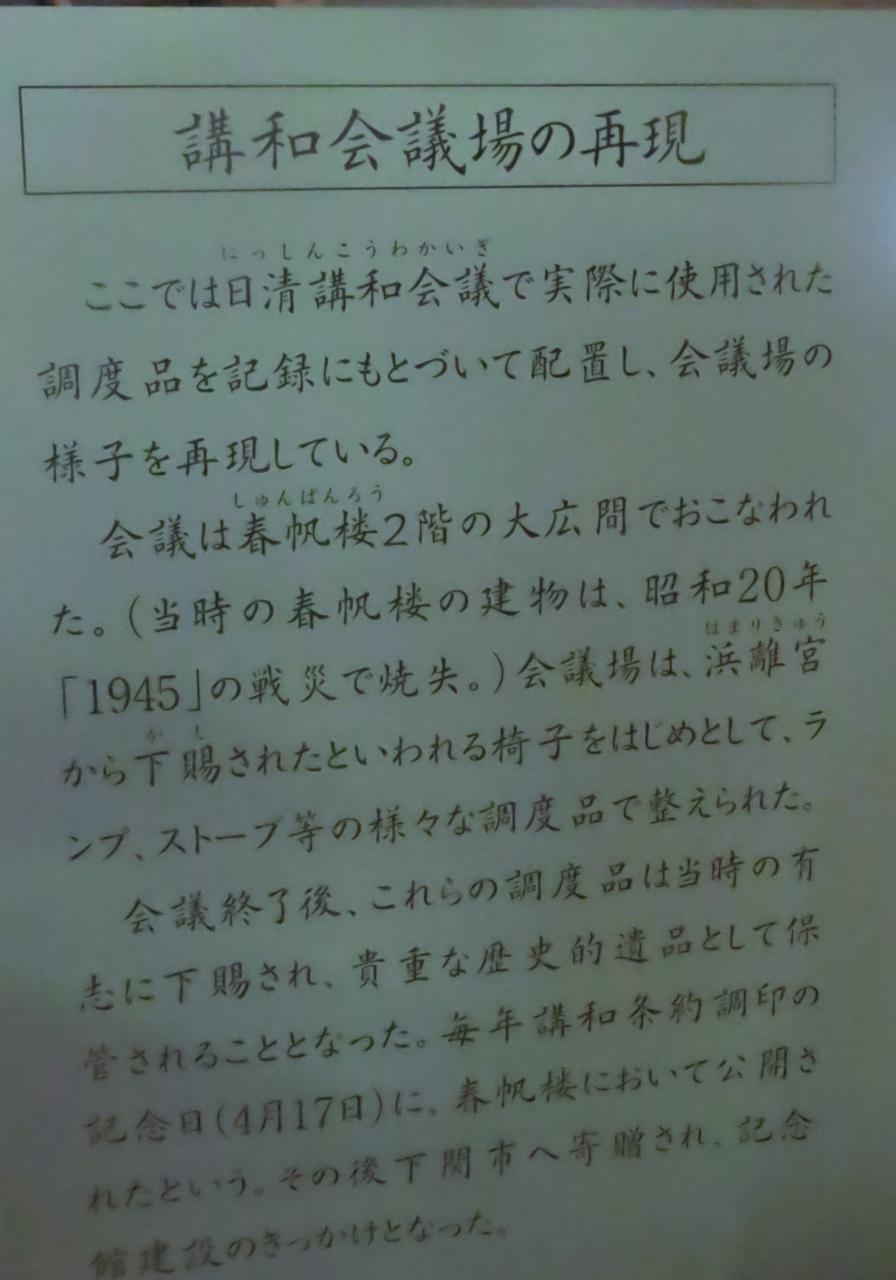 講和会議場の再現
にっしんこうわかいぎ
ここでは日清講和会議で実際に使用された
調度品を記録にもとづいて配置し、会議場の
様子を再現している。
しゅんぱんろう
会議は春帆楼2階の大広間でおこなわれ
た。(当時の春帆楼の建物は、昭和20年
はまりきゅう
「1945」の戦災で焼失。)会議場は、浜離宮
かし
から下賜されたといわれる椅子をはじめとして、ラ
ンプ、ストーブ等の様々な調度品で整えられた。
会議終了後、これらの調度品は当時の有
志に下賜され、貴重な歴史的遺品として保
管されることとなった。毎年講和条約調印の
記念日(4月17日)に、春帆楼において公開さ
れたという。その後下関市へ寄贈され、記念
館建設のきっかけとなった。